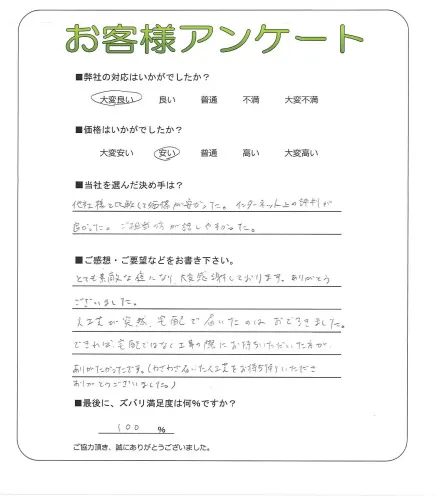 お客様アンケート
■弊社の対応はいかがでしたか?
大変良い 良い 普通 不満 大変不満
■価格はいかがでしたか?
大変安い 安い 普通 高い 大変高い
■当社を選んだ決め手は?
他社様と比較して価格が安かった。インターネット上の評判が
良かった。ご担当の方が話しやすかった。
■ご感想・ご要望などをお書き下さい。
とても素敵な庭になり、大変感謝しております。ありがとう
ございました。
人工芝が突然、宅配で届いたのはおどろきました。
できれば、宅配ではなく工事の際にお持ちいただいた方が
ありがたかったです。(わざわざ届いた人工芝をお持ち帰りいただき
ありがとうございました。)
■最後に、ズバリ満足度は何%ですか?
100 %
ご協力頂き、誠にありがとうございました。